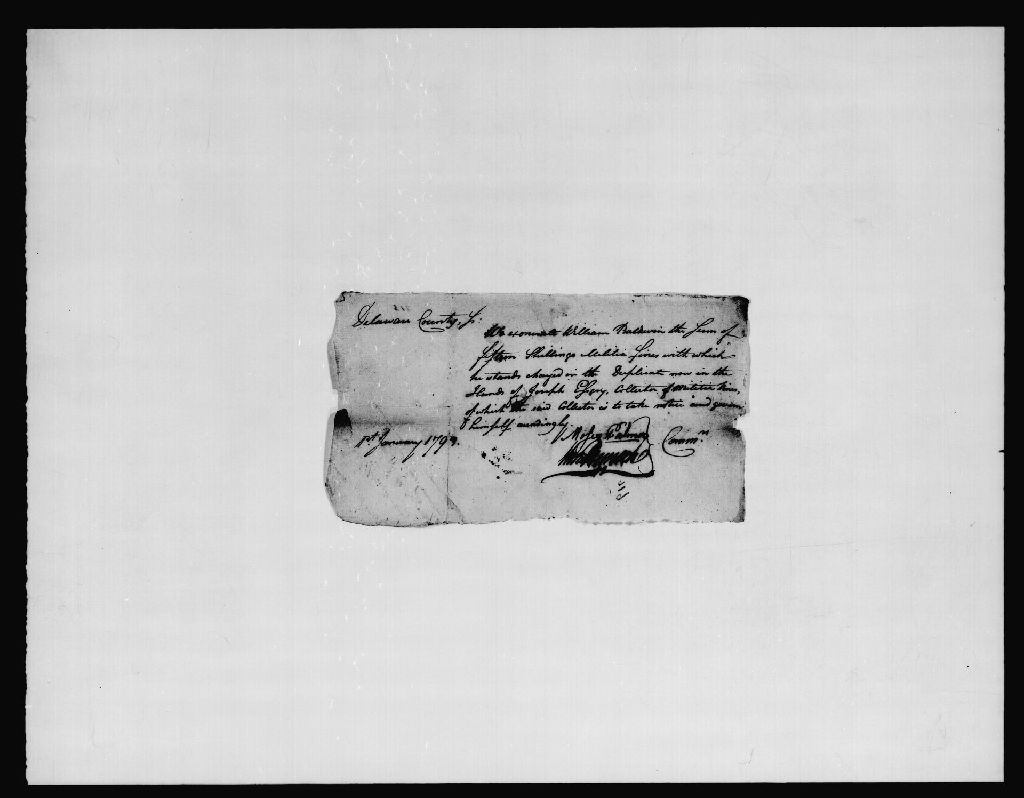 Delaware County Ss:
We exonerate William Baldwin the Sum of
fifteen Shillings Militia fines with which
he stands charged in the Duplicate now in the
Hands of Joseph Essery, Collector of Militia fines,
of which the said Collector is to take notice and govern
himself accordingly
1st January 179
Moses Palmer
Commrs